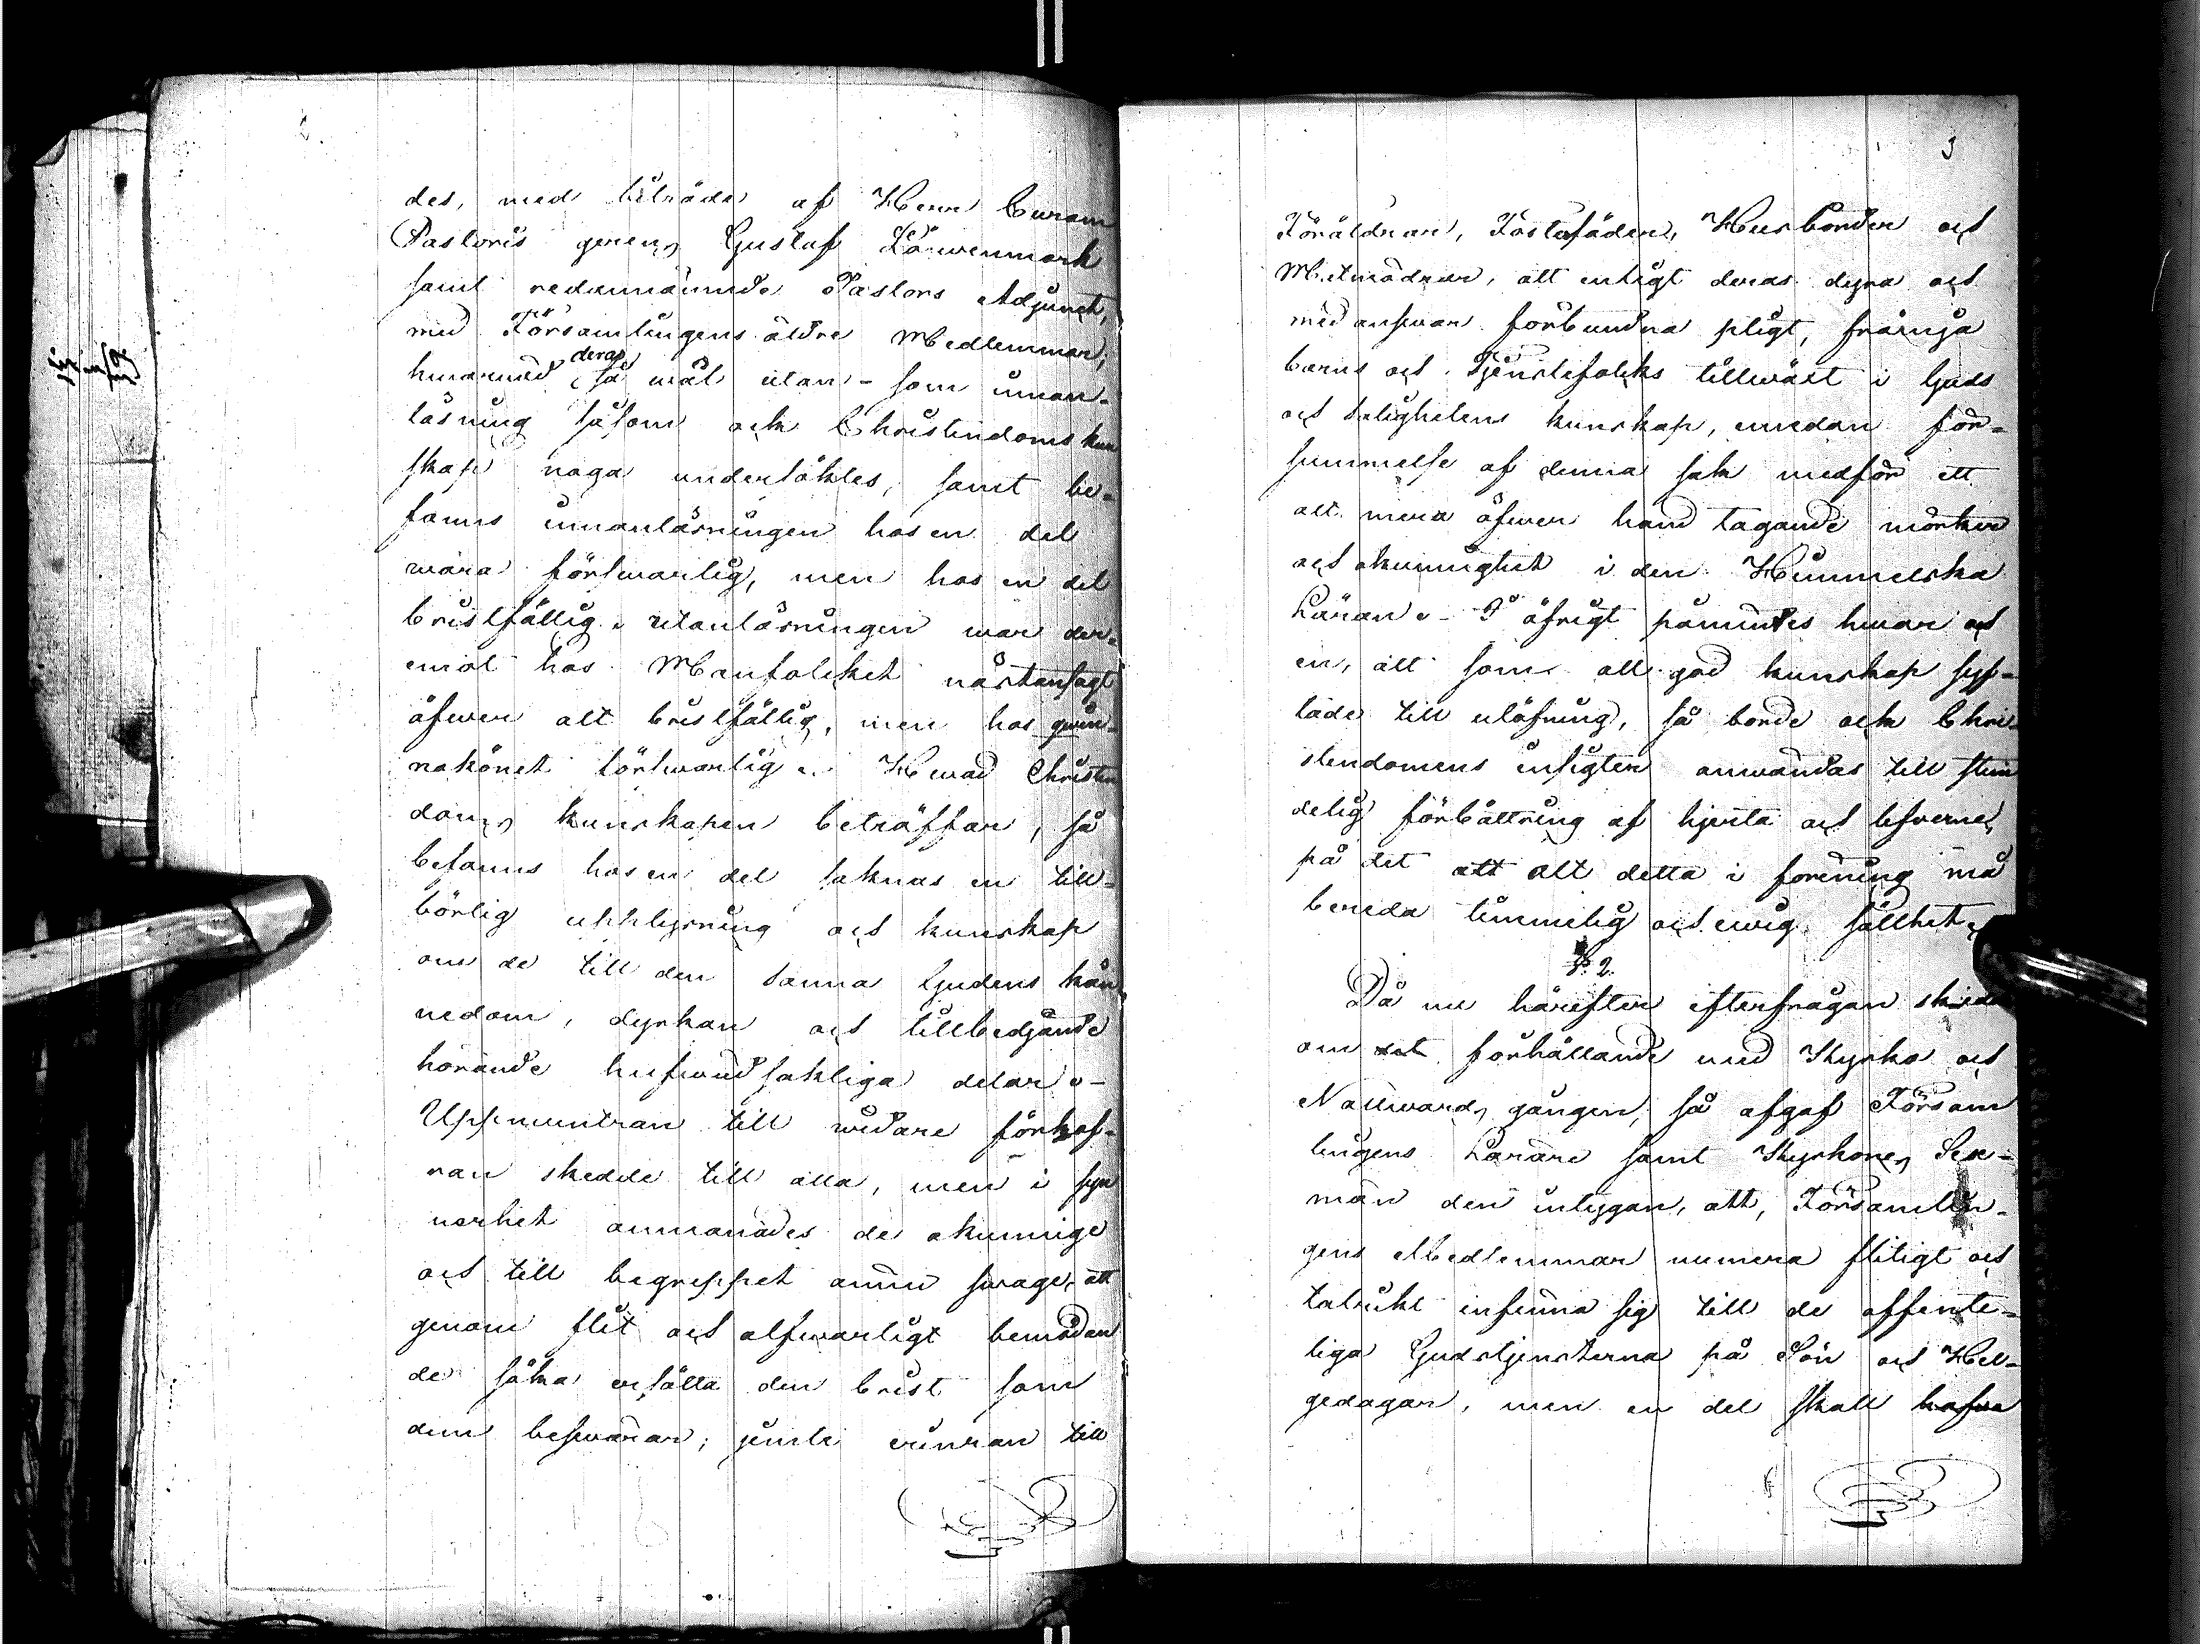 des, med biträde af Herr Curam
Pastoris gerens Gustaf Löwenmark
samt redannämnde Pastors Adjunct,
med Församlingens äldre Medlemmar;
hwarwid deras så wäl utan- som innan-
läsning såsom ock Christendoms kun
skap noga undersöktes, samt be-
fanns innanläsningen hos en del
wara förswarlig, men hos en del
bristfällig. utanläsningen war der-
emot hos Manfolcket nästansagt
öfwer alt bristfällig, men hos qwin-
nokönet förswarlig. Hwad Christen
doms kunskapen beträffar, så
befanns hos en del saknas en till-
börlig upplysning och kunskap
om de till den sanna Gudens kän
nedom, dyrkan och tillbedjande
hörande hufwudsakliga delar.-
Uppmuntran till widare förkof-
ran skedde till alla, men i syn
nerhet anmanades de okunnige
och till begreppet ännu swage, att
genom flit och alfwarligt bemödan
de söka ersätta den brist som
dem beswärar; jemte erinran till
3
Föräldrar, Fosterfäder, Husbönder och
Matmödrar, att enligt deras dyra och
med answar förbundna pligt, främja
barns och Tjenstefolcks tillwäxt i Guds
och salighetens kunskap, emedan för-
summelse af denna sak medför ett
alt mera öfwer hand tagande mörker
och okunnighet i den Himmelska
Läran.- I öfrigt påmintes hwar och
en, att som all god kunskap syf-
tade till utöfning, så borde ock Chri-
stendomens insigter anwändas till stün
delig förbättring af hjerta och lefverne,
på det att alt detta i förening må
bereda timmelig och ewig sällhet.
§ 2.
Då nu härefter efterfrågan skedde
om det förhållande med Kyrko och
Nattwards gången, så afgaf Försam
lingens Lärare samt Kyrkones Sex-
män den intygan, att, Församlin-
gens Medlemmar numera flitigt och
talrikt infinna sig till de offente-
liga Gudstjensterna på Sön och Hel-
gedagar, men en del skall hafwa